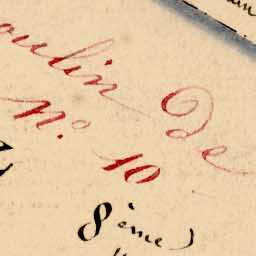 oulin De
N.º 10
8ème)